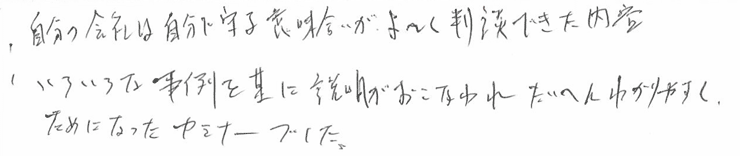 ・自分の会社は自分で守る意味合いがよーく判談できた内容
・いろいろな事例を基に説明がおこなわれ たいへんわかりやすく、
ためになったセミナーでした。